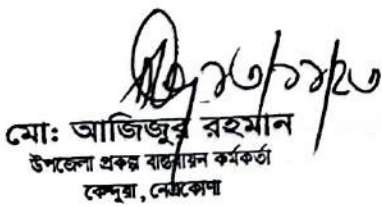 ১৩/১১/২৩
মো: আজিজুর রহমান
উপজেলা প্রকল্প বাস্তবায়ন কর্মকর্তা
কেন্দুয়া, নেত্রকোণা